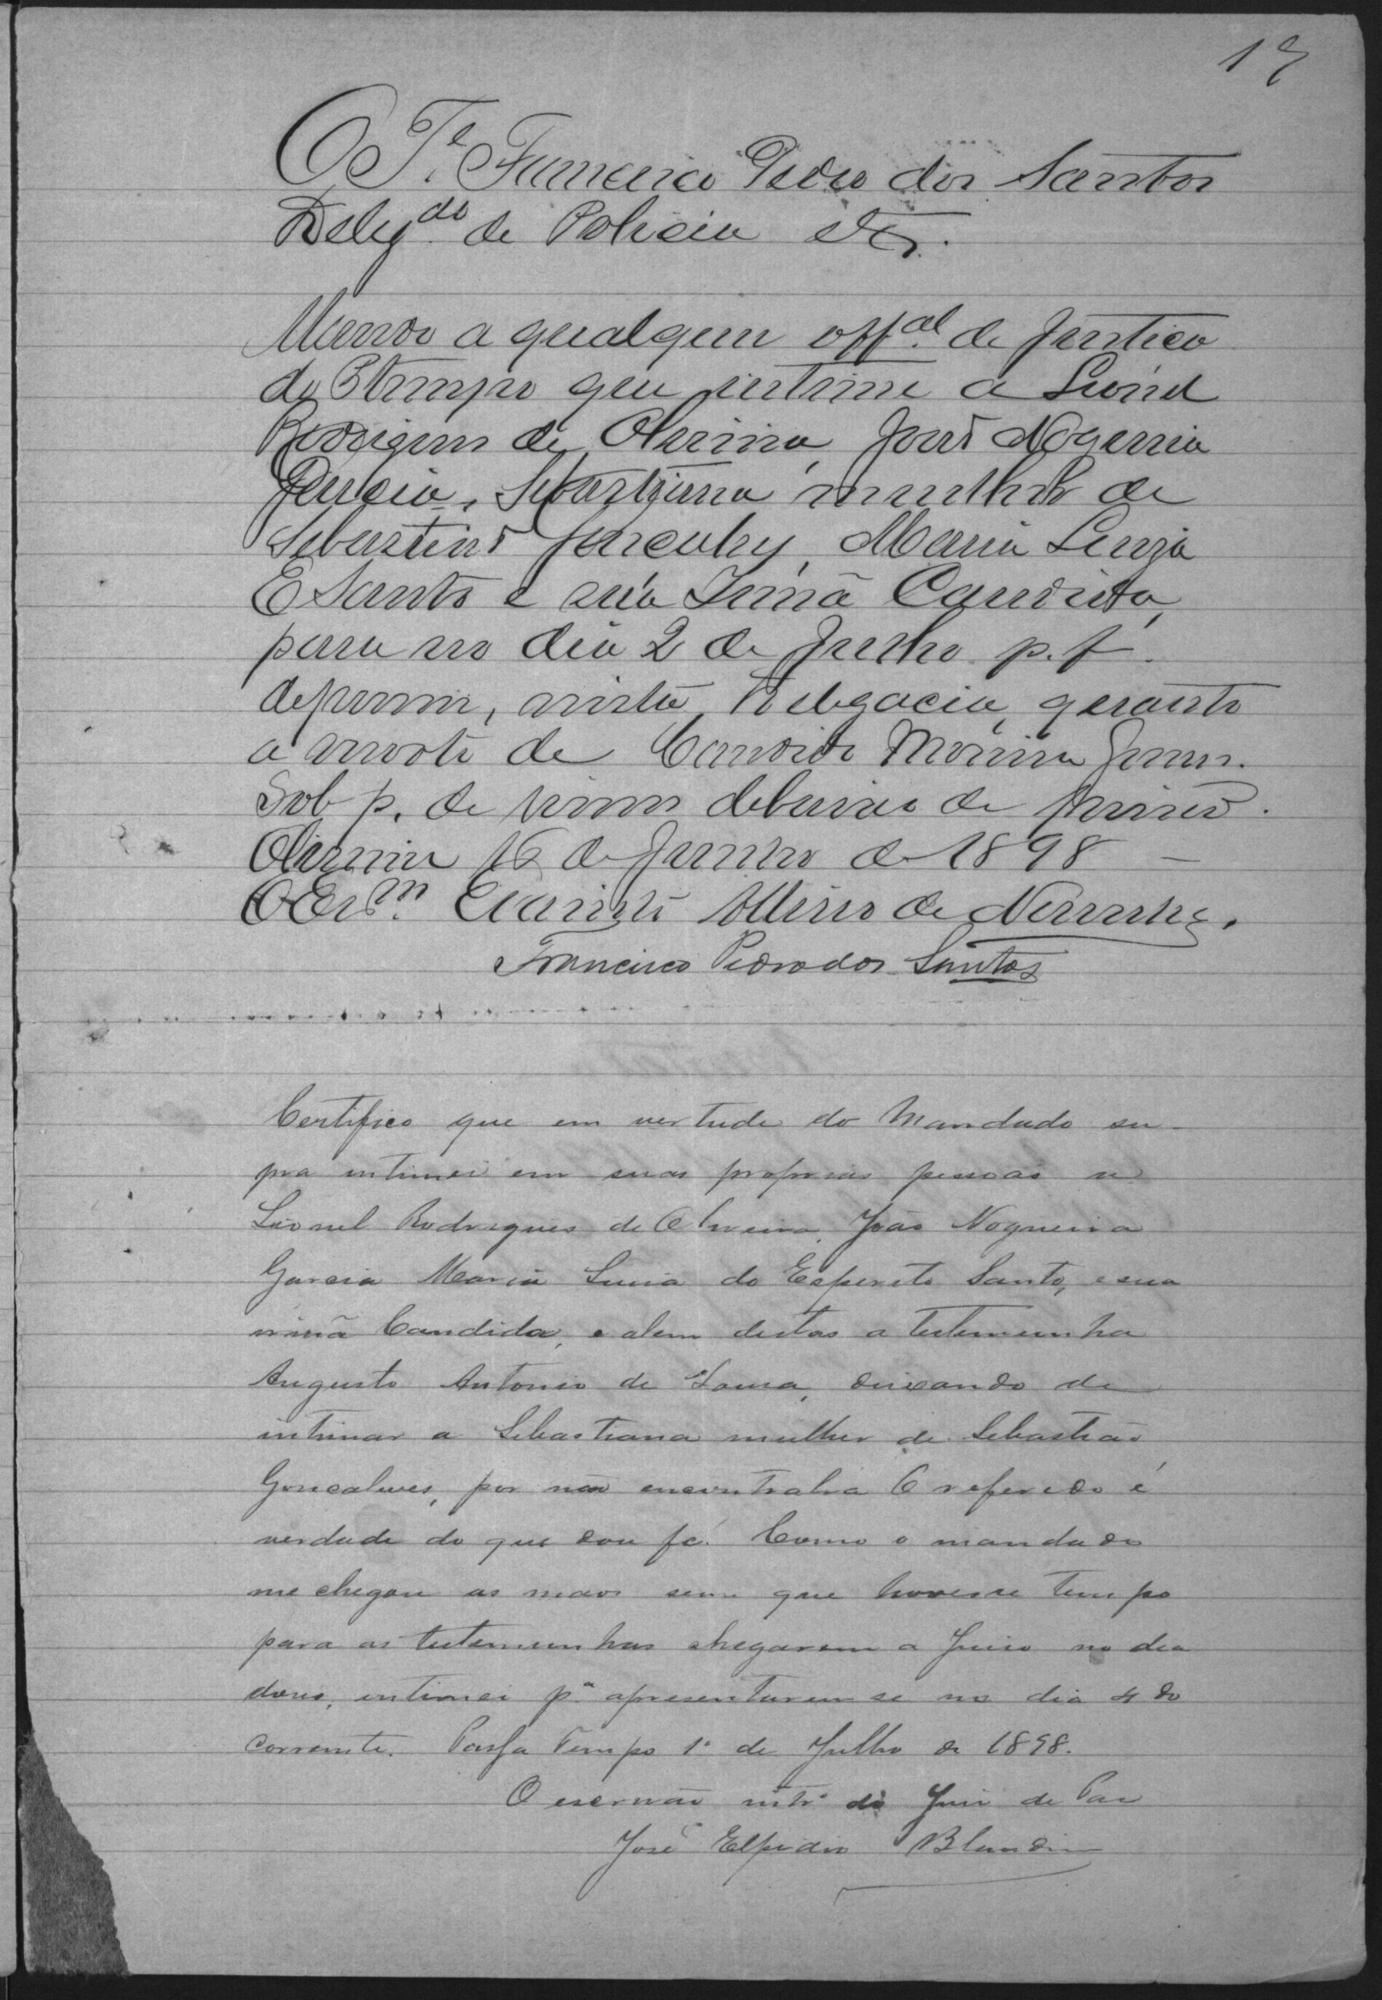 17
O Te. Francisco Pedro dos Santos
Delegdo. de Policia etc.
Mando a qualquer offal. de Justiça
do Ptempo que intime a Leonel
Rodrigues de Oliveira, João Nogueira
Garcia, Sebastiana mulher de
Sebastião Gonçalves, Maria Luiza
E Santo e sua Irmã Candida,
para no dia 2 de Julho p. f.
deporem, nesta Delegacia, quanto
a morte de Candido Moreira
Sob p. de de baixo de prisão.
Oliveira 16 de Junho de 1898 —
O Escm. Evaristo de
Francisco Pedro dos Santos
Certifico que em vertude do Mandado su-
pra intimei em suas proprias pessoas a
Leonel Rodrigues de Oliveira, João Nogueira
Garcia Maria Luiza do Esperito Santo, e sua
irmã Candida, e alem destas a testemunha
Augusto Antonio de Sousa, deixando de
intimar a Sebastiana mulher de Sebastião
Goncalves, por não encontralra O referido é
verdade do que dou fé. Como o mandado
me chegou as maos sem que houvesse tempo
para as testemunhas chegarem a Juiso no dia
dous, intimei pa. apresentarem se no dia 4 do
corrente. Passa Tempo 1º de Julho de 1898.
O escrivão intº do Juiz de Paz
José Elpidio Blandim